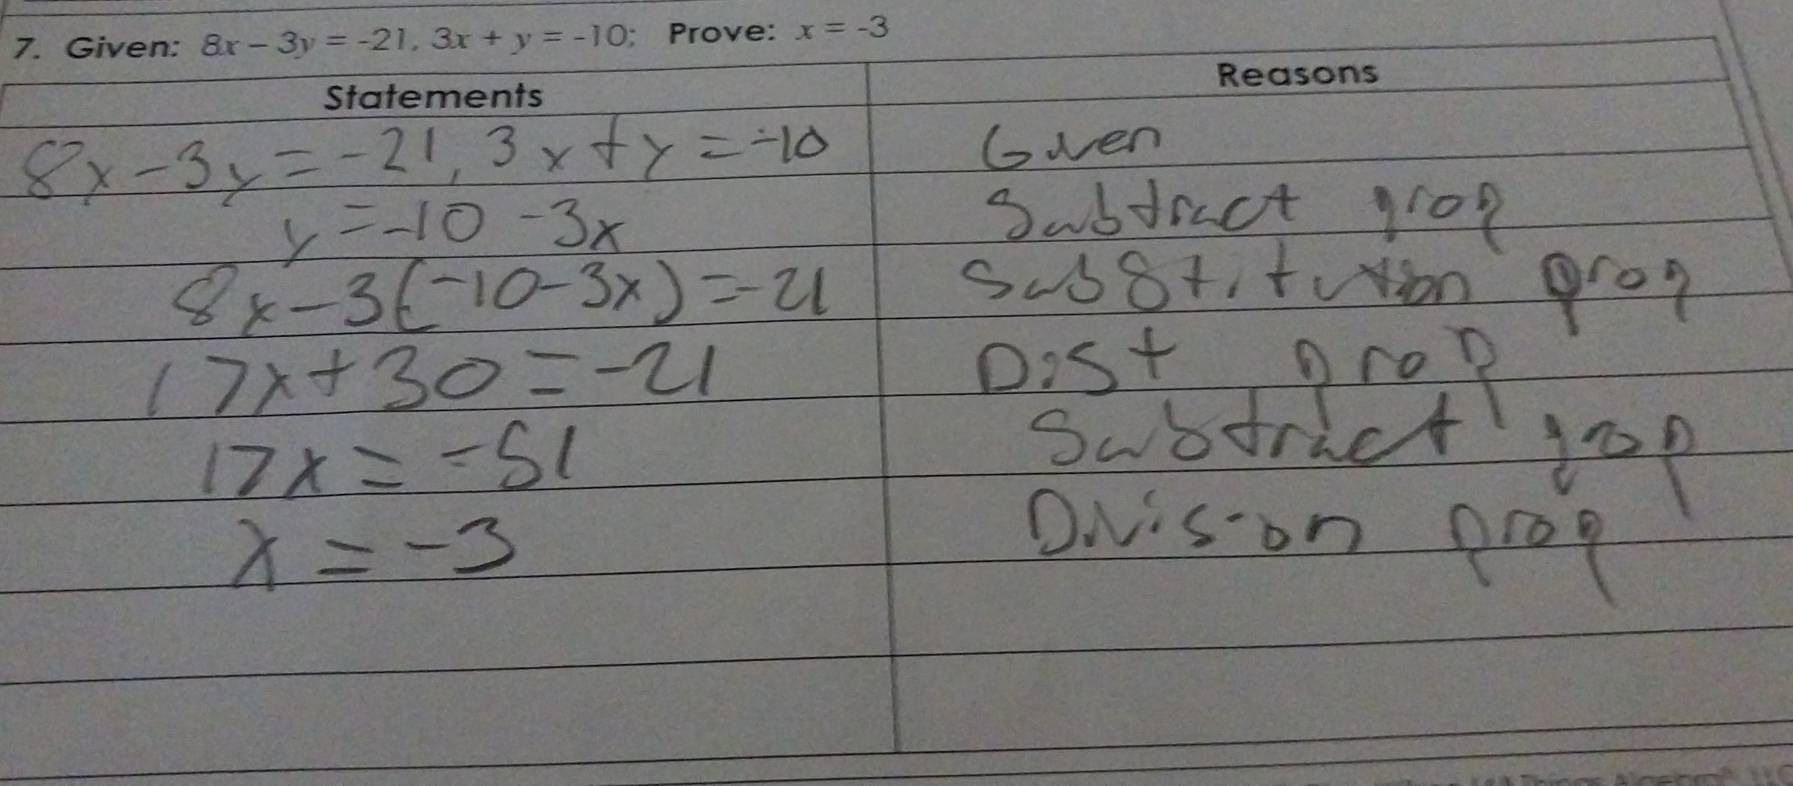 7. Given: 8x – 3y = -21, 3x + y = -10; Prove: x = -3
Statements Reasons
8x - 3y = -21, 3x + y = -10 Given
y = -10 - 3x Subtract prop
8x - 3(-10 - 3x) = -21 Substitution prop
17x + 30 = -21 Dist prop
17x = -51 Subtract prop
x = -3 Division prop
Things Algebra®, LLC